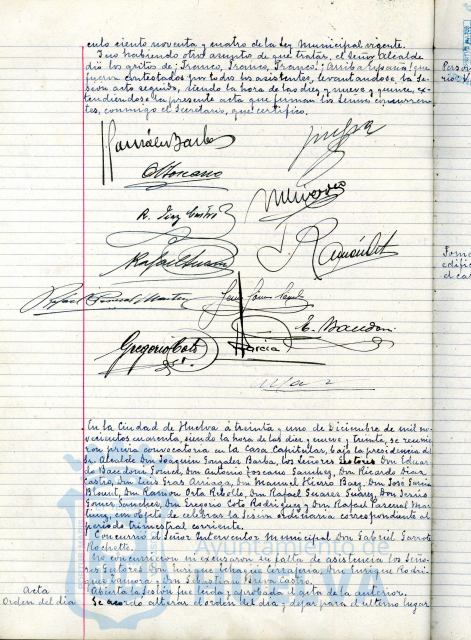 culo ciento noventa y cuatro de la Ley Municipal vigente.
Y no habiendo otro asunto de que tratar, el Señor Alcalde
dió los gritos de ¡Franco, Franco, Franco! ¡Arriba España! que
fueron contestados por todos los asistentes, levantandose la Se-
sión acto seguido, siendo la hora de las diez y nueve y quince, ex-
tendiendose la presente acta que firman los Señores concurren-
tes, conmigo el Secretario, que certifico.
Joaquín González Barba
A Toscano
R. Diaz Castro
Rafael Suarez
J. Ramón Orta
Rafael Pascual Martinez
E. Baudoin
Gregorio Coto
García
En la Ciudad de Huelva á treinta y uno de Diciembre de mil no-
vecientos cuarenta, siendo la hora de las diez y nueve y treinta, se reunie-
ron previa convocatoria en la Casa Capitular, bajo la presidencia del
Sr. Alcalde Don Joaquin González Barba, los Señores Gestores Don Eduar-
do Baudoin Don Antonio Toscano Sanchez, Don Ricardo Diaz
Castro, Don Luis Gras Arriaga, Don Manuel Hierro Don José García
Blount, Don Ramon Orta Rebollo, Don Rafael Suarez Suarez, Don Jesús
Gómez Don Gregorio Coto Rodriguez y Don Rafael Pascual Mar-
tinez, con objeto de celebrar la Sesión ordinaria correspondiente al
periodo trimestral corriente.
Concurrió el Señor Interventor Municipal Don Gabriel Garrote
Rochette.
No concurrieron ni excusaron su falta de asistencia los Seño-
res Gestores Don Enrique Don Enrique Rodri-
guez Zamora y Don Sebastian Castro.
Acta Abierta la Sesión fue leida y aprobada el acta de la anterior.
Orden del día Se acordo alterar el orden del dia y dejar para el ultimo lugar